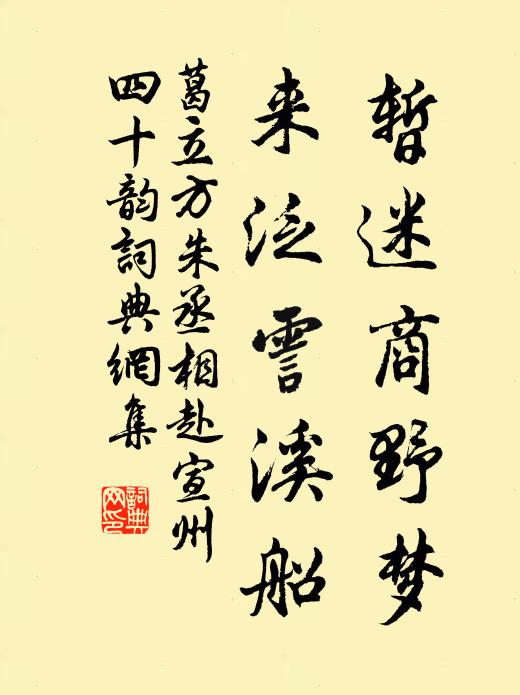 暫迷商野梦
来泛霅溪船
葛立方朱丞相赴宣州
四十韵詞典網集
詞典
网印